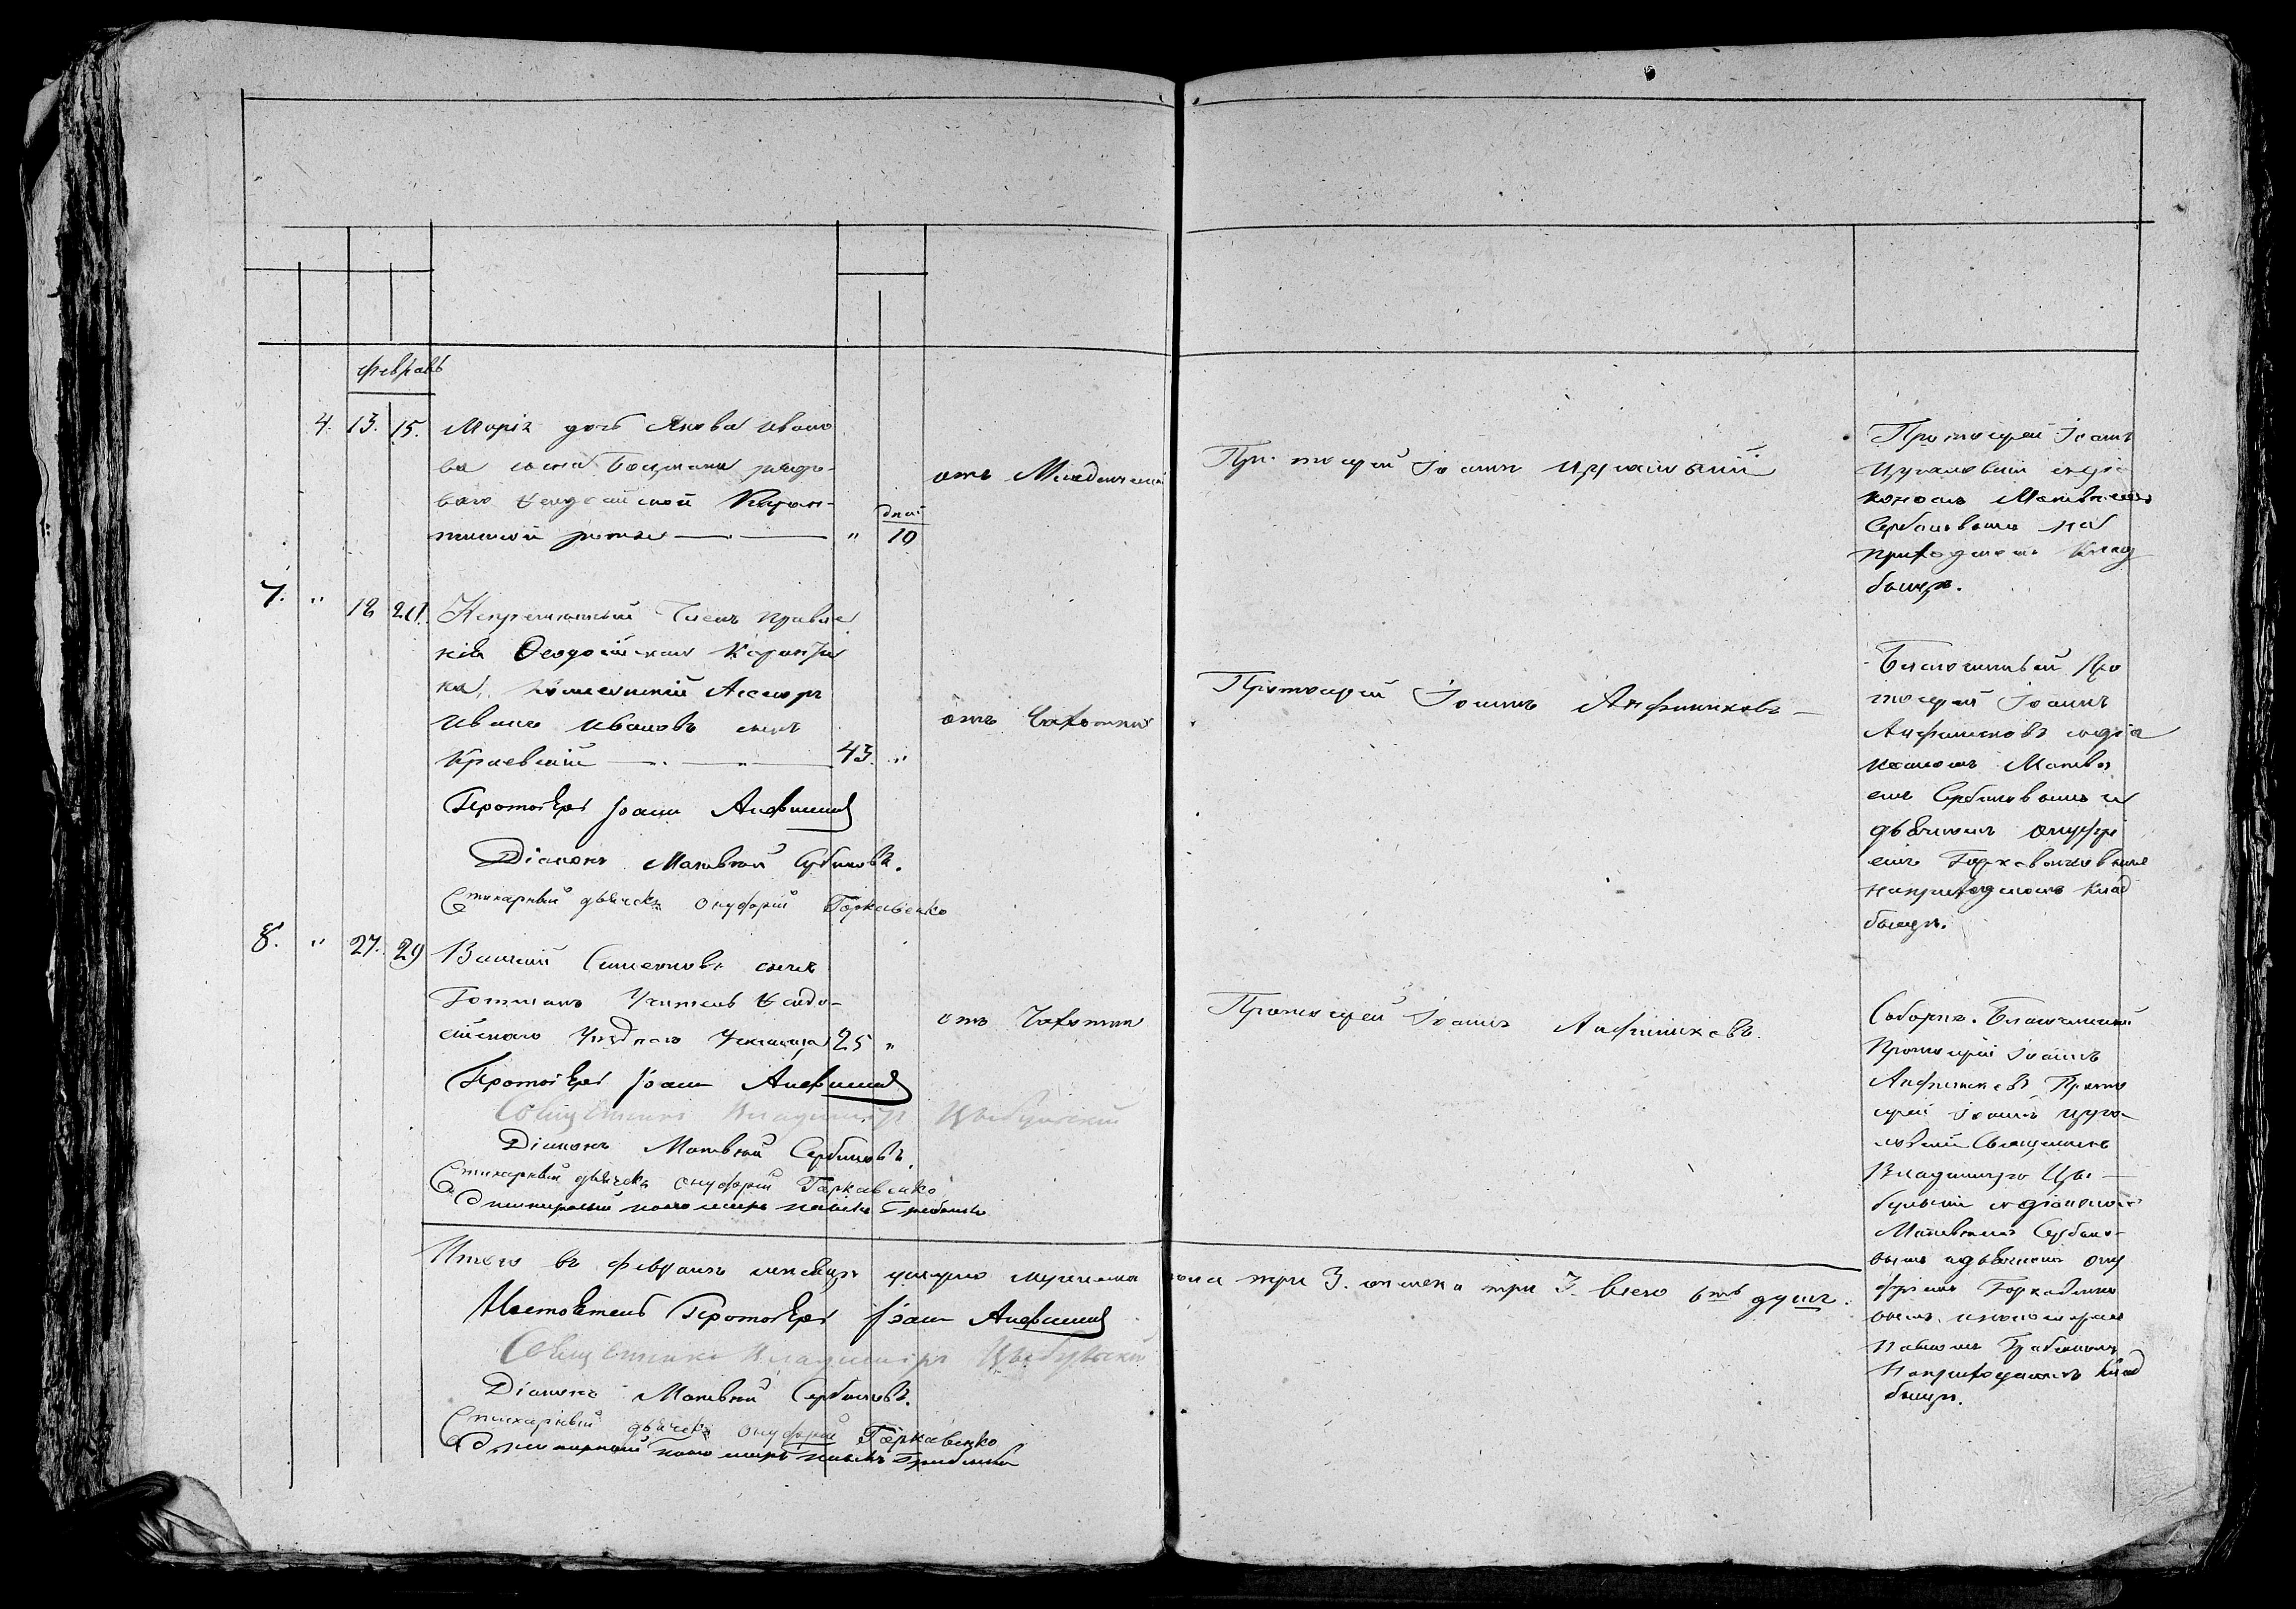 февраль
4. 13. 15. Марія дочь Якова Ивано
ва сына Боцмана рядо-
ваго Феодосійской Каран-
тинной роты — " дней 10
отъ Младенческой
Протоіерей Іоаннъ
Протоіерей Іоаннъ
съ діа
кономъ Матвеемъ
Сербиновымъ на
приходскомъ клад
бищѣ.
7. " 18 20. Непременный Членъ правле
нія Феодосійскаго Каранти
на, Коллежскій Асесоръ
Иванъ Ивановъ сынъ
Краевскій — 43. "
отъ Чахотки
Протоіерей Іоаннъ Анфиниковъ —
Благочинный Про
тоіерей Іоаннъ
Анфиниковъ съ діа
кономъ Матвѣ
емъ Сербиновымъ и
дьячкомъ Онуфрі
емъ Горкавенковымъ
на приходскомъ клад
бищѣ.
Протоіерей Іоаннъ
Діаконъ Матвей Сербиновъ.
Стихарный дьячекъ Онуфрій Горкавенко
8. " 27. 29 Василій Симеоновъ сынъ
Готманъ Учитель Феодо-
сійскаго Уѣзднаго Училища 25 "
отъ Чахотки
Протоіерей Іоаннъ Анфиниковъ.
Соборнѣ. Благочинный
Протоіерей Іоаннъ
Анфиниковъ, Прото
іерей Іоаннъ
Священникъ
Владимиръ Цы-
бульскій съ діакономъ
Матвеемъ Сербино-
вымъ и дьячкомъ Ону
фріемъ Горкавенко
вымъ и пономаремъ
Павломъ
На приходскомъ клад
бищѣ.
Протоіерей Іоаннъ
Священникъ Владимиръ Цыбульскій
Діаконъ Матвей Сербиновъ.
Стихарный дьячекъ Онуфрій Горкавенко
Стихарный пономарь Павелъ
Итого въ февралѣ месяцѣ умерло мужеска пола три 3. женска три 3. всего 6ть душъ.
Настоятель Протоіерей Іоаннъ
Священникъ Владимиръ Цыбульскій
Діаконъ Матвей Сербиновъ.
Стихарный дьячекъ Онуфрій Горкавенко
Стихарный пономарь Павелъ